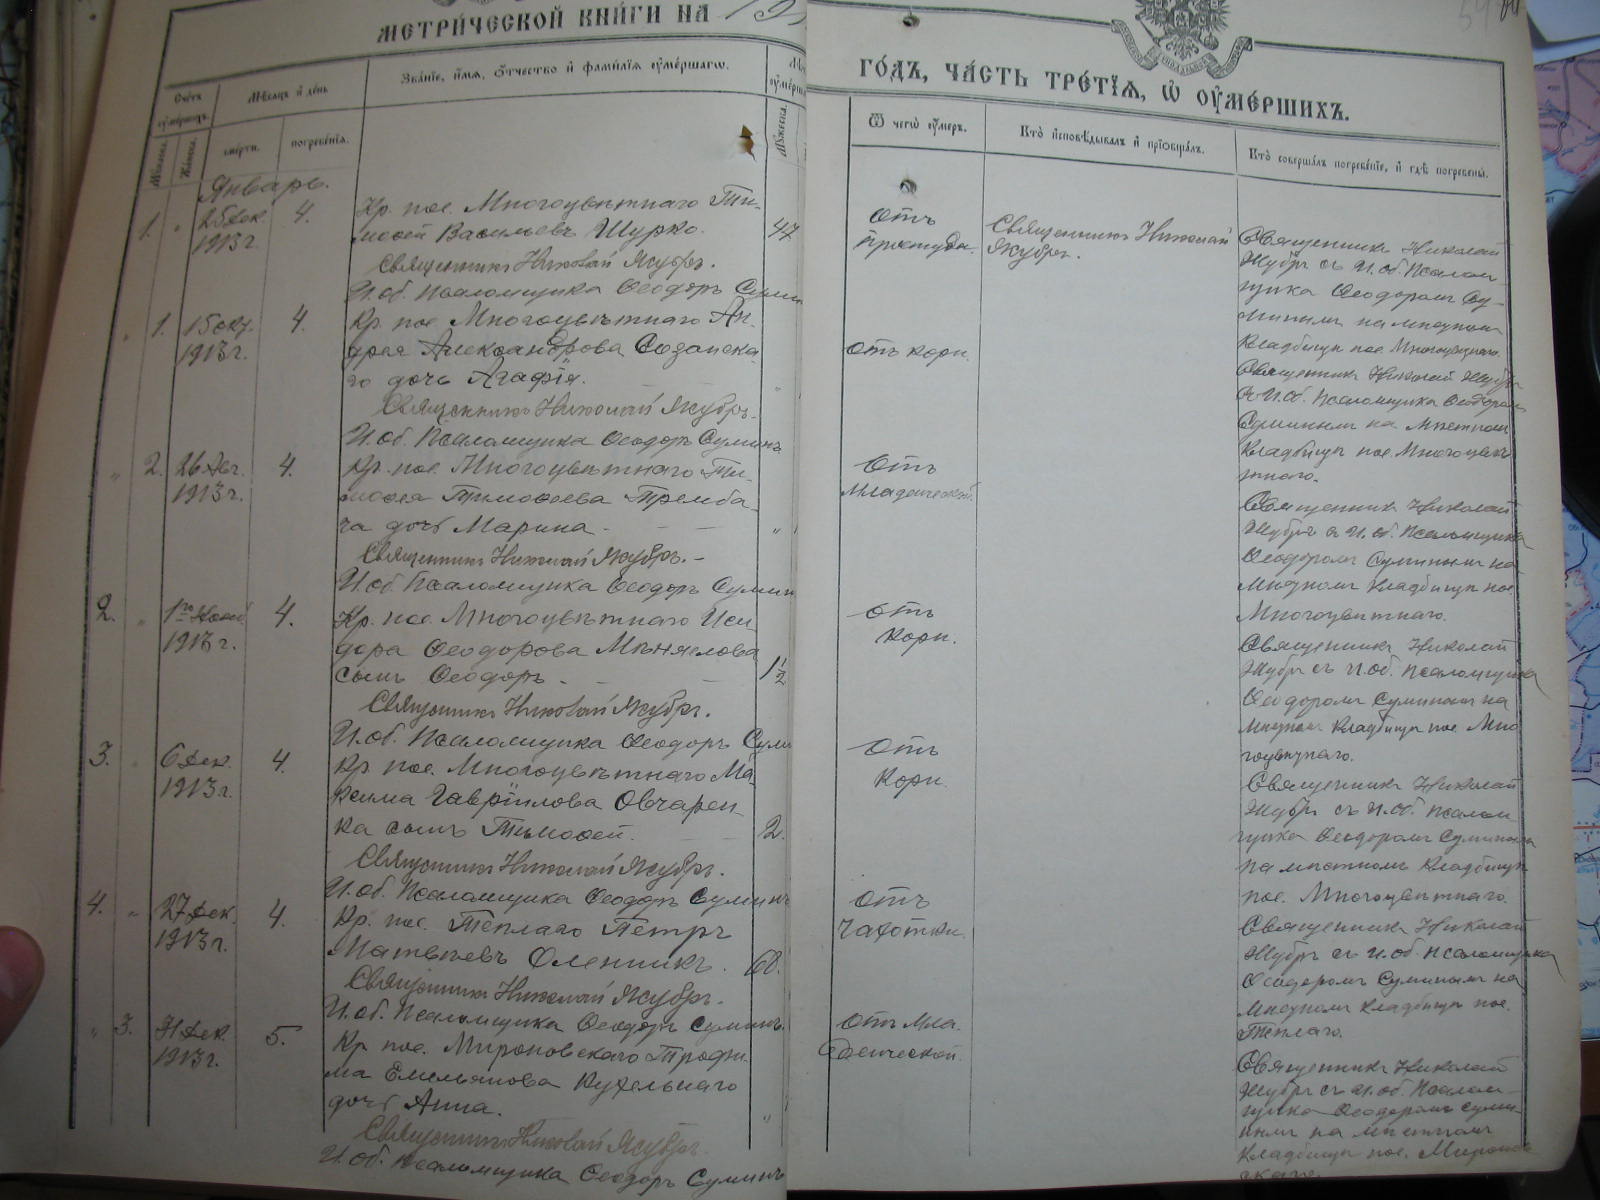 МЕТРИ́ЧЕСКОЙ КНИ́ГИ НА 191
ГО́ДЪ, ЧА́СТЬ ТРЕ́ТЇѦ, Ѡ ОУМЕ́РШИХЪ.
Счетъ оумершихъ.
Мѣсѧцъ и день
Званїе, имѧ, отчество и фамилїѧ оумершагѡ.
Мужеска.
Женска.
смерти.
погребенїѧ.
Мужеска.
Ѿ чегѡ оумеръ.
Кто исповѣдывалъ и прїобщалъ.
Кто совершалъ погребенїе, и гдѣ погребены.
Январь.
1. " 25 Дек. 1913 г. 4.
Кр. пос. Многоцвѣтнаго Ти-
мофей Васильевъ Шурко. 47
Священникъ Николай Якубъ.
И.об. Псаломщика Ѳеодоръ Сумин
отъ
простуды.
Священникъ Николай
Якубъ.
Священникъ Николай
Якубъ съ И.об. Псалом-
щика Ѳеодоромъ Су-
минымъ на мѣстномъ
кладбищѣ пос. Многоцвѣтнаго.
" 1. 15 1913 г. 4.
Кр. пос. Многоцвѣтнаго Ан-
дрея Александрова
го дочь Агафія.
Священникъ Николай Якубъ.
И.об. Псаломщика Ѳеодоръ Суминъ
отъ кори.
Священникъ Николай Якубъ
съ И.об. Псаломщика Ѳеодоромъ
Суминымъ на мѣстномъ
кладбищѣ пос. Многоцвѣ-
тнаго.
" 2. 26 Авг. 1913 г. 4.
Кр. пос. Многоцвѣтнаго Ти-
мофея Тимофеева Тремба-
ча дочь Марина.
Священникъ Николай Якубъ.
И.об. Псаломщика Ѳеодоръ Сумин
отъ
младенческой.
Священникъ Николай
Якубъ съ И.об. Псаломщика
Ѳеодоромъ Суминымъ на
мѣстномъ кладбищѣ пос.
Многоцвѣтнаго.
2. " 1го Нояб. 1913 г. 4.
Кр. пос. Многоцвѣтнаго Иси-
дора Ѳеодорова
сынъ Ѳеодоръ. 1 1/2
Священникъ Николай Якубъ.
И.об. Псаломщика Ѳеодоръ Суми
отъ
кори.
Священникъ Николай
Якубъ съ И.об. Псаломщика
Ѳеодоромъ Суминымъ на
мѣстномъ кладбищѣ пос. Мно
гоцвѣтнаго.
3. " 6 Дек. 1913 г. 4.
Кр. пос. Многоцвѣтнаго Ма-
ксима Гавріилова Овчарен-
ка сынъ Тимофей. 2.
Священникъ Николай Якубъ.
И.об. Псаломщика Ѳеодоръ Суминъ
отъ
кори.
Священникъ Николай
Якубъ съ И.об. Псалом-
щика Ѳеодоромъ Суминымъ
на мѣстномъ кладбищѣ
пос. Многоцвѣтнаго.
4. " 27 Дек. 1913 г. 4.
Кр. пос. Теплаго Петръ
Матвѣевъ Олейникъ. 68.
Священникъ Николай Якубъ.
И.об. Псаломщика Ѳеодоръ Суминъ.
отъ
чахотки.
Священникъ Николай
Якубъ съ И.об. Псаломщика
Ѳеодоромъ Суминымъ на
мѣстномъ кладбищѣ пос.
Теплаго.
" 3. 31 Дек. 1913 г. 5.
Кр. пос. Мироновскаго Трофи-
ма Емельянова
дочь Анна.
Священникъ Николай Якубъ.
И.об. Псаломщика Ѳеодоръ Суминъ
отъ мла-
денческой.
Священникъ Николай
Якубъ съ И.об. Псалом-
щика Ѳеодоромъ Суми-
нымъ на мѣстномъ
кладбищѣ пос. Миронов
скаго.